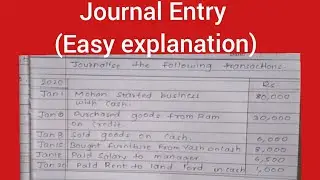 Journal Entry
(Easy explanation)
Journalise the following transactions
2020 Rs
Jan 1 Mohan started business 80,000
with cash.
Jan 8 Purchased goods from Ram 30,000
on credit.
Jan 9 Sold goods on cash. 6,000
Bought furniture from Yash on cash 8,000
Paid Salary to manager 6,500
Paid Rent to land lord in cash 1,000